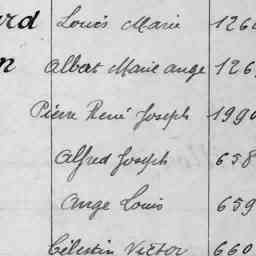 ard Louis Marie 126
n Albert Marie ange 126
Pierre René Joseph 1990
Alfred Joseph 658
Ange Louis 659
Célestin Victor 660